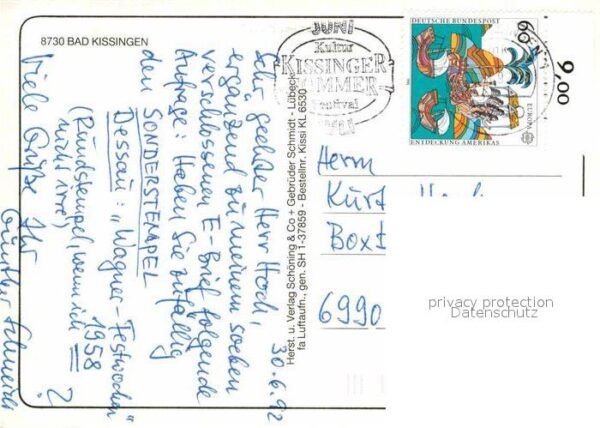 8730 BAD KISSINGEN
30.6.92
Sehr geehrter Herr
ergänzend zu meinem soeben
verschlossenen E-Brief folgende
Anfrage: Haben Sie zufällig
den SONDERSTEMPEL
Dessau: "Wagner-Festwochen"
1958
(Rundstempel, wenn ich
nicht irre) ?
Viele Grüße Ihr
Günther
Herst. u. Verlag Schöning & Co + Gebrüder Schmidt - Lübeck
fa Luftaufn., gen. SH 1-37859 - Bestellnr. Kissi KL 6530
JUNI
Kultur
KISSINGER
SOMMER
Festival
JULI
DEUTSCHE BUNDESPOST
60
EUROPA
ENTDECKUNG AMERIKAS
9,00
Herrn
Kurt
Boxt
6990
privacy protection
Datenschutz